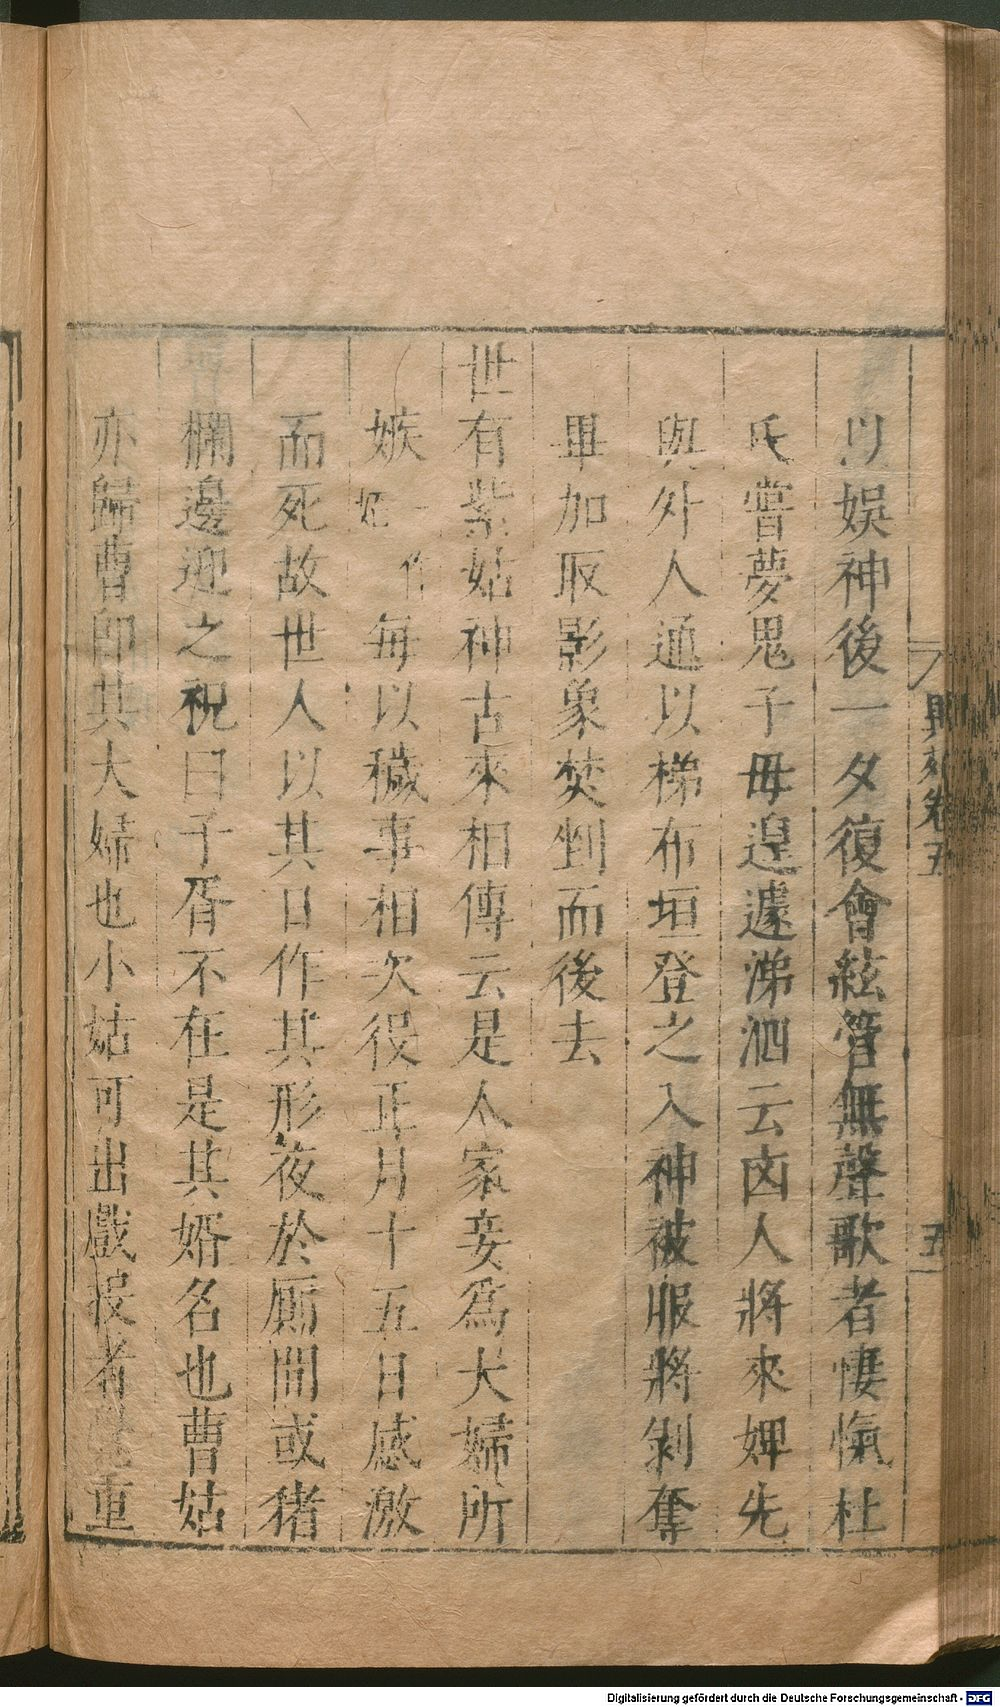 以娛神後一夕復會絃管無聲歌者悽愾杜
氏嘗夢鬼子母遑遽涕泗云凶人將來婢先
與外人通以梯布垣登之入神被服將剝奪
畢加取影象焚剉而後去
世有紫姑神古來相傳云是人家妾為大婦所
嫉
一作
妬
每以穢事相次役正月十五日感激
而死故世人以其日作其形夜於廁間或猪
欄邊迎之祝曰子胥不在是其婿名也曹姑
亦歸曹即其大婦也小姑可出戲捉者重
卷五
五
Digitalisierung gefördert durch die Deutsche Forschungsgemeinschaft - DFG